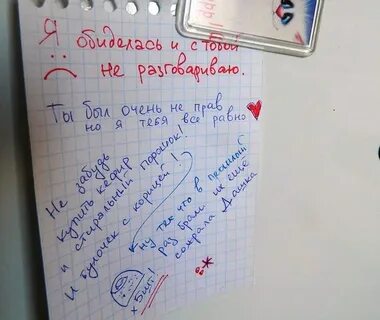 Я обиделась и с тобой
не разговариваю.
Ты был очень не прав
но я тебя все равно
Не забудь
купить кефир
и стиральный порошок!
И булочек с корицей!
ну тех что в прошлый
раз брали их еще
сожрала Дашка
х 5 шт!